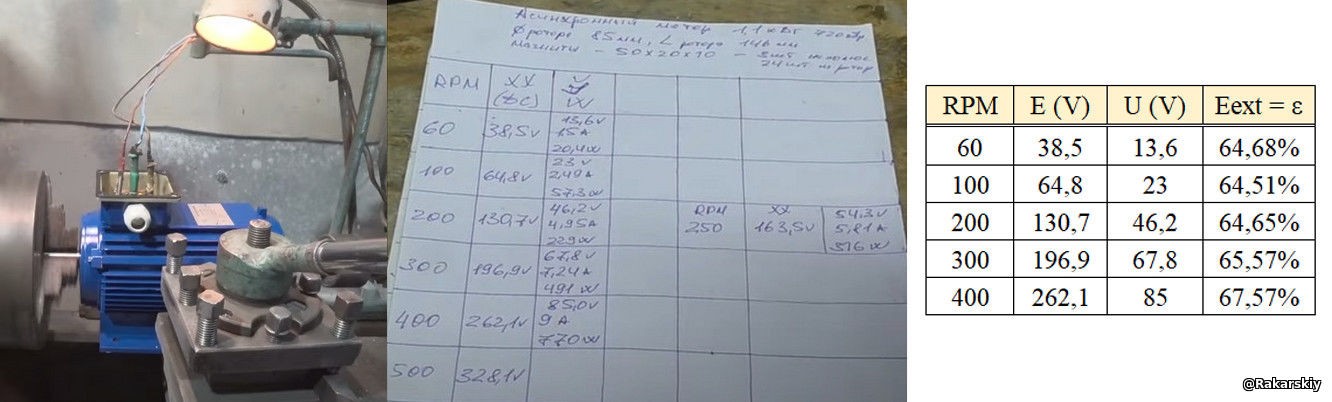 Асинхронный мотор 1,1 кВт 720 об
Ф ротора 85 мм, L ротора 146 мм
Магниты - 50x20x10 - 3шт на полюс
24шт на ротор
RPM XX (DC) V W
60 38,5v 13,6v 15A 20,4w
100 64,8v 23v 2,49A 57,3w
200 130,7v 46,2v 4,95A 229w
RPM XX 54,3v
250 163,5v 5,81A
316w
300 196,9v 67,8v 7,24A 491w
400 262,1v 85,0v 9A 770w
500 328,1v
RPM E (V) U (V) Eext = ε
60 38,5 13,6 64,68%
100 64,8 23 64,51%
200 130,7 46,2 64,65%
300 196,9 67,8 65,57%
400 262,1 85 67,57%
@Rakarskiy